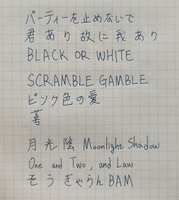 パーティーを止めないで
君あり故に我あり
BLACK OR WHITE
SCRAMBLE GAMBLE
ピンク色の愛
月光陰 Moonlight Shadow
One and Two, and Law
そうぎゃらんBAM